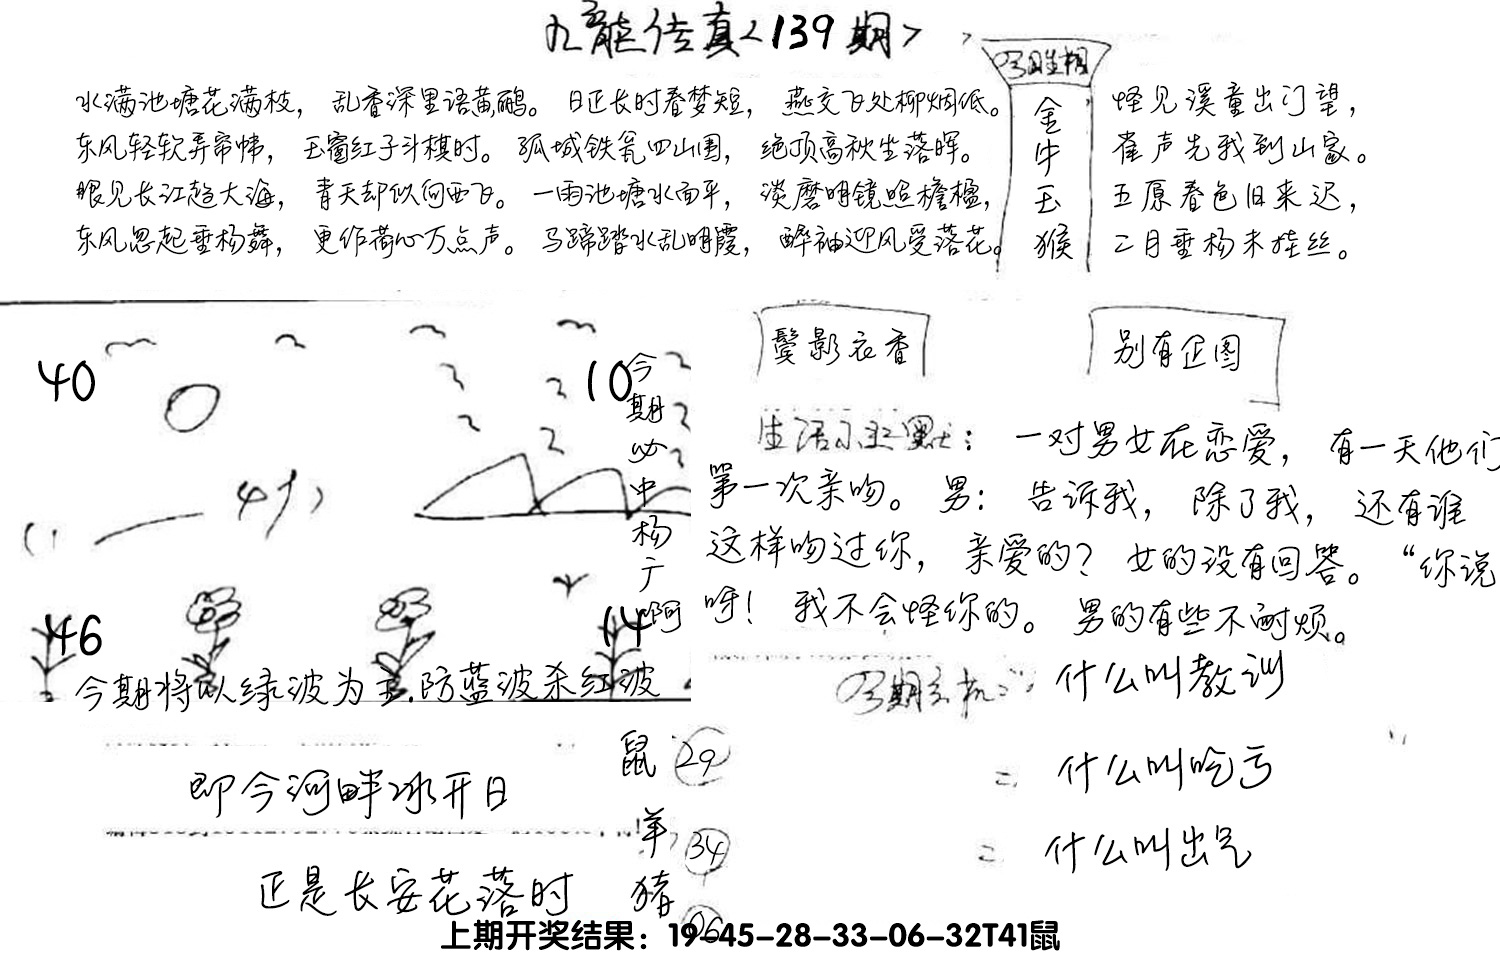 九龙传真<139期>
水满池塘花满枝，乱香深里语黄鹂。日正长时春梦短，燕交飞处柳烟低。
东风轻软弄帘帏，玉窗红子斗棋时。孤城铁瓮四山围，绝顶高秋坐落晖。
眼见长江趋大海，青天却似向西飞。一雨池塘水面平，淡磨明镜照檐楹，
东风忽起垂杨舞，更作荷心万点声。马蹄踏水乱明霞，醉袖迎风受落花。
金
牛
玉
猴
怪见溪童出门望，
雀声先我到山家。
五原春色旧来迟，
二月垂杨未挂丝。
40
10
46
14
今期必中杨广啊
今期将以绿波为主.防蓝波杀红波
鬓影衣香
别有企图
生活幽默：一对男女在恋爱，有一天他们
第一次亲吻。男：告诉我，除了我，还有谁
这样吻过你，亲爱的？女的没有回答。“你说
呀！我不会怪你的。男的有些不耐烦。
什么叫教训
什么叫吃亏
什么叫出兄
即今河畔冰开日
正是长安花落时
鼠 29
羊 34
猪 06
上期开奖结果：19-45-28-33-06-32T41鼠